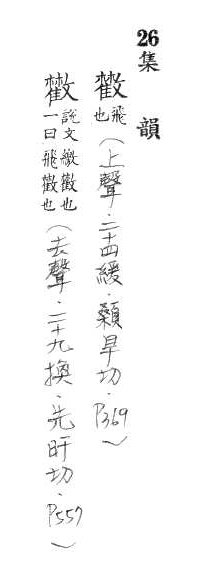 26集韻
飛也(上聲.二十四緩.顙旱切.P369~
說文繳也
一曰飛也(去聲.二十九換.先旰切.P557~)